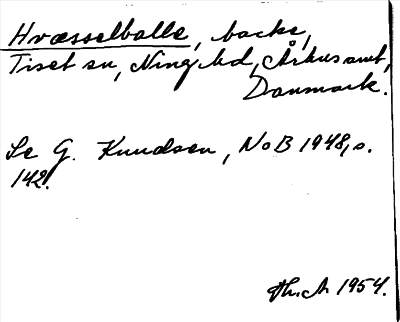 Hvæsselballe, backe,
Tiset sn, Ning hd, Århus amt,
Danmark.
Se G. Knudsen, NoB 1948, s.
142.
Th. A. 1954.